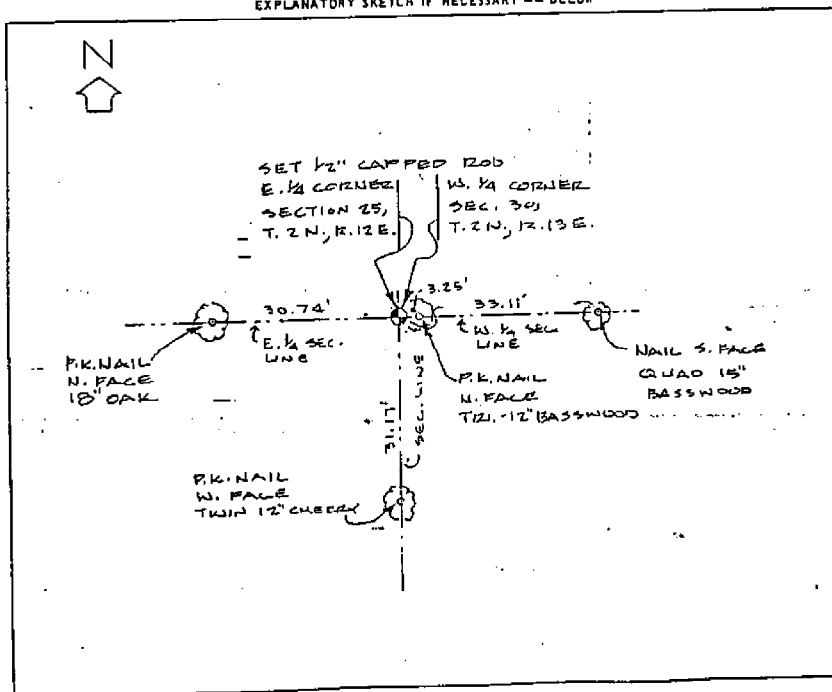 EXPLANATORY SKETCH IF NECESSARY -- BELOW
N
SET 1/2" CAPPED ROD
E. 1/4 CORNER
SECTION 25,
T. 2 N., R. 12 E.
W. 1/4 CORNER
SEC. 30,
T. 2 N., R. 13 E.
30.74'
3.25'
33.11'
E. 1/4 SEC.
LINE
W. 1/4 SEC
LINE
P.K. NAIL
N. FACE
18" OAK
P.K. NAIL
N. FACE
TRI.-12" BASSWOOD
NAIL S. FACE
QUAD 15"
BASSWOOD
31.17'
SEC. LINE
P.K. NAIL
W. FACE
TWIN 12" CHERRY